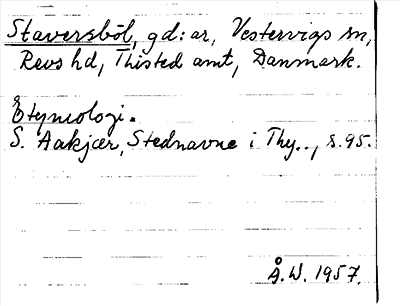 Staversböl, gd:ar, Vestervigs sn,
Revs hd, Thisted amt, Danmark.
Etymologi.
S. Aakjær, Stednavne i Thy.., s.95.
Å.W. 1957.